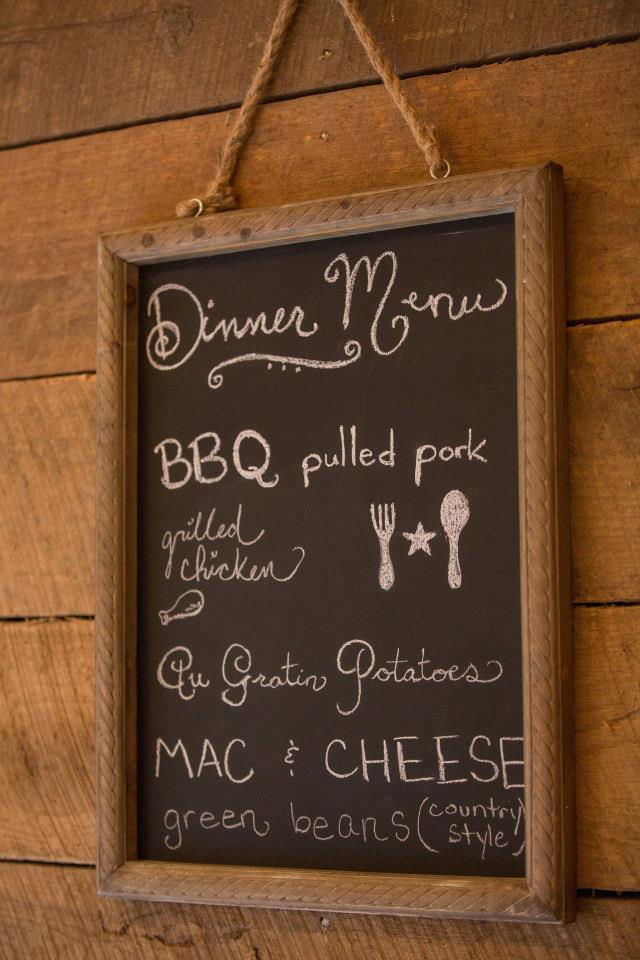 Dinner Menu
BBQ pulled pork
grilled
chicken
Au Gratin Potatoes
MAC & CHEESE
green beans (country
style)